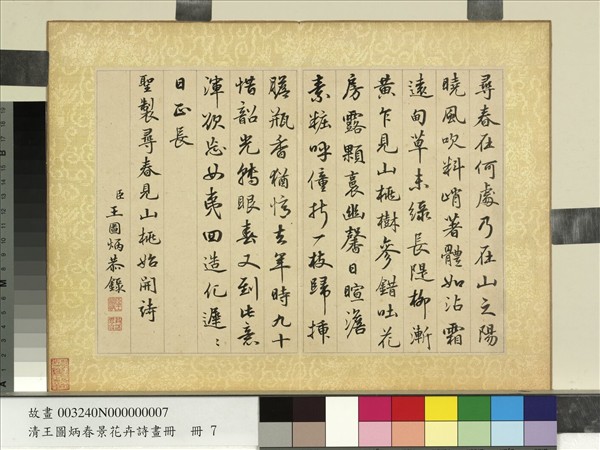 尋春在何處乃在山之陽
曉風吹料峭著體如沾霜
遠甸草未綠長隄柳漸
黃乍見山桃樹參錯吐花
房露顆裛幽馨日暄澹
素粧呼僮折一枝歸插
膽瓶香猶憶去年時九十
惜韶光轉眼春又到此意
渾欲忘如夷回造化遲遲
日正長
聖製尋春見山桃始開詩
臣王圖炳恭錄
故畫 003240N000000007
清王圖炳春景花卉詩畫冊 冊 7
B
M
A